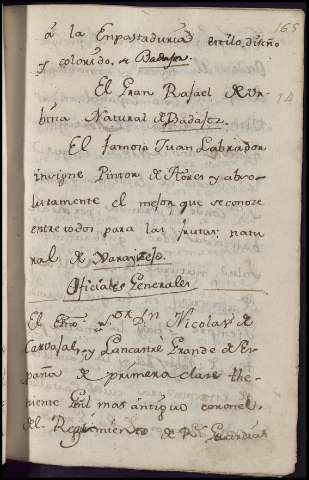 165
á la Enpastaduria, estilo, diseño
y colorido, de Badajoz.
14
El Gran Rafael de Ur-
bina Natural de Badajoz.
El famoso Juan Labrador
insigne Pintor de flores y abso-
lutamente el mejor que se conoze
entre todos para las frutas; natu-
ral de
Oficiales Generales
El Exmo Sor Dn Nicolas de
Carbajal, y Lancastre Grande de Es-
paña de primera clase the-
niente Gral mas antiguo coronel
del Regimiento de Rs Guardias